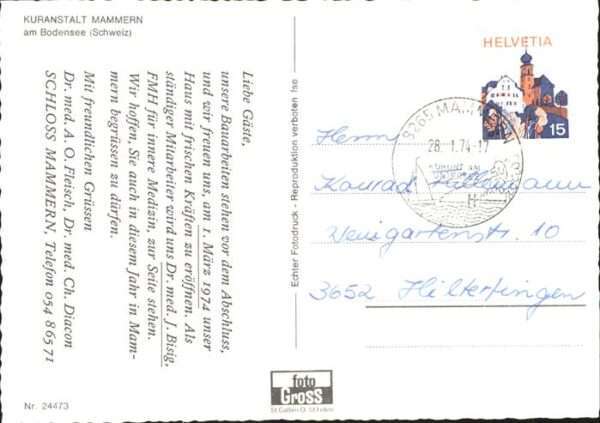 KURANSTALT MAMMERN
am Bodensee (Schweiz)
Liebe Gäste,
unsere Bauarbeiten stehen vor dem Abschluss,
und wir freuen uns, am 1. März 1974 unser
Haus mit frischen Kräften zu eröffnen. Als
ständiger Mitarbeiter wird uns Dr. med. J. Bisig,
FMH für innere Medizin, zur Seite stehen.
Wir hoffen, Sie auch in diesem Jahr in Mam-
mern begrüssen zu dürfen.
Mit freundlichen Grüssen
Dr. med. A. O. Fleisch, Dr. med. Ch. Diacon
SCHLOSS MAMMERN, Telefon 054 86571
Nr. 24473
Echter Fotodruck - Reproduktion verboten
foto
GROSS
St. Gallen
HELVETIA
15
8265 MAMMERN
28.1.74-17
Herrn
Konrad
Weingartenstr. 10
3652 Hilterfingen